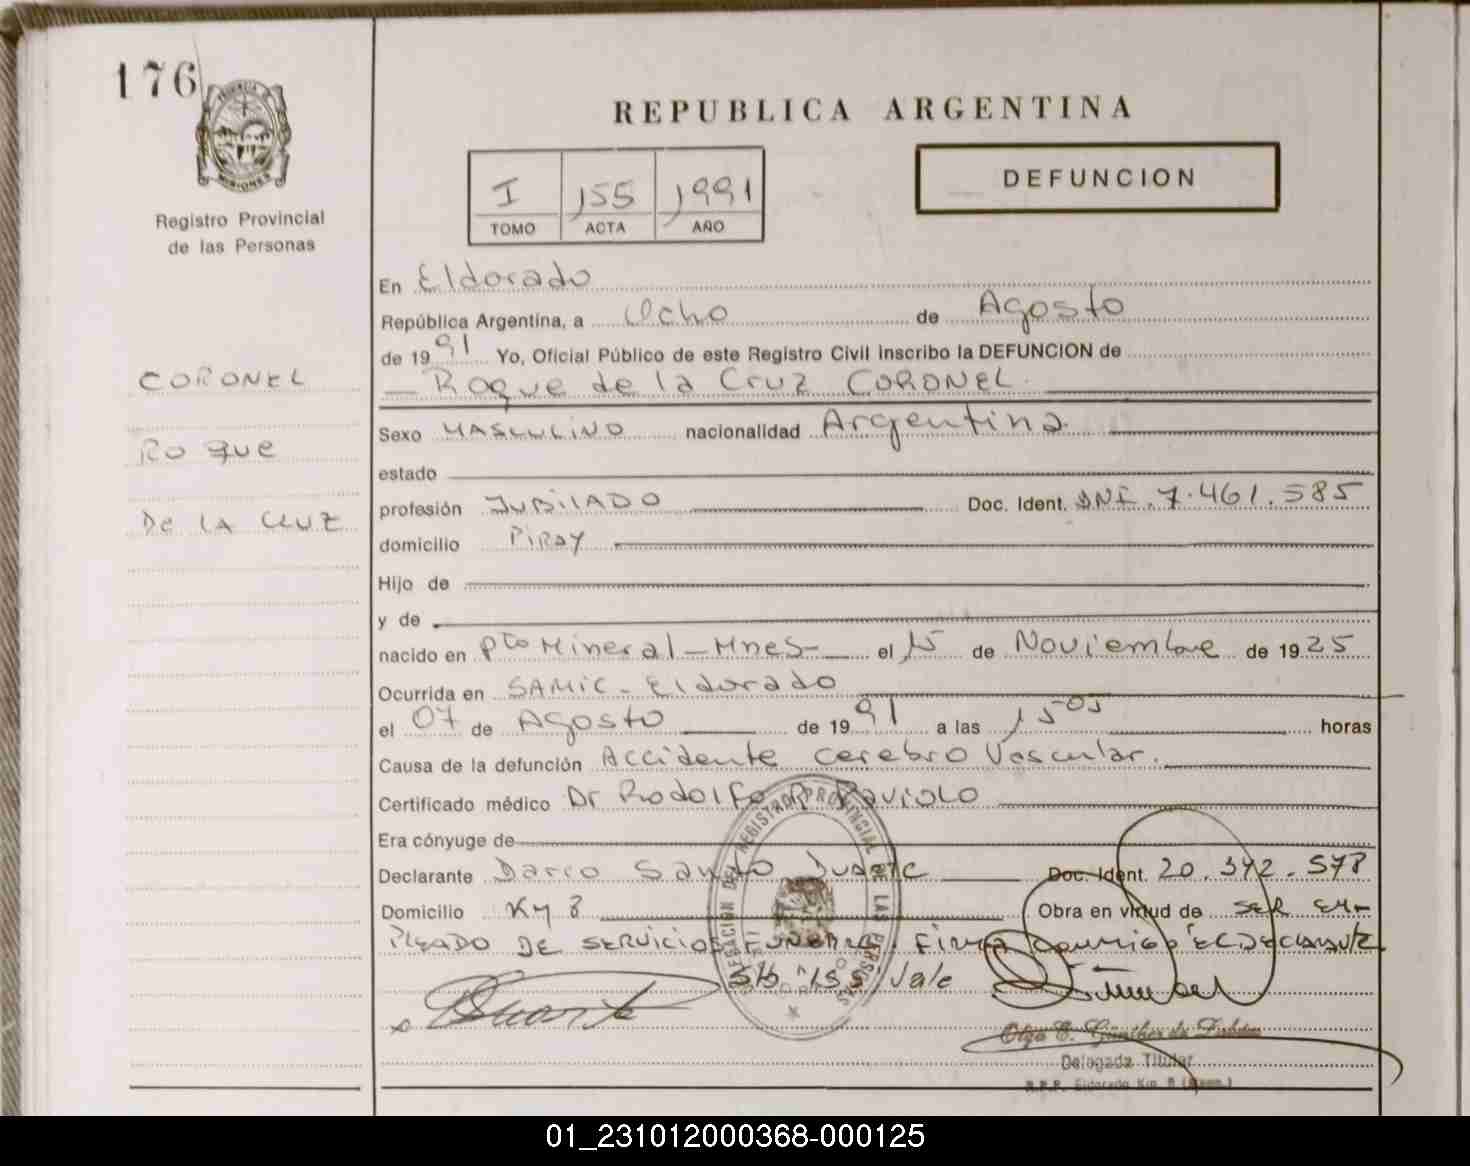 176
REPUBLICA ARGENTINA
PROVINCIA
MISIONES
Registro Provincial
de las Personas
I 155 1991
TOMO ACTA AÑO
DEFUNCION
En Eldorado
República Argentina, a Ocho de Agosto
de 1991 Yo, Oficial Público de este Registro Civil inscribo la DEFUNCION de
Roque de la Cruz CORONEL
CORONEL
ROque
De LA CRUZ
Sexo MASCULINO nacionalidad Argentina
estado
profesión JUBILADO Doc. Ident. DNI. 7.461.585
domicilio PIRAY
Hijo de
y de
nacido en Pto Mineral - Mnes - el 15 de Noviembre de 1925
Ocurrida en SAMIC - Eldorado
el 07 de Agosto de 1991 a las 15 05 horas
Causa de la defunción Accidente cerebro Vascular.
Certificado médico Dr Rodolfo R Raviolo
Era cónyuge de
Declarante Dario Santo Duarte Doc. Ident. 20.372.578
Domicilio KM 8 Obra en virtud de SER EM-
PLEADO DE SERVICIOS FUNEBRE. FIRMA CONMIGO EL DECLARANTE
Vale
DELEGACION DEL REGISTRO PROVINCIAL DE LAS PERSONAS
Olga E. Günther de
Delegada Titular
R.P.P. Eldorado Km. 8 (Mnes.)
01_231012000368-000125